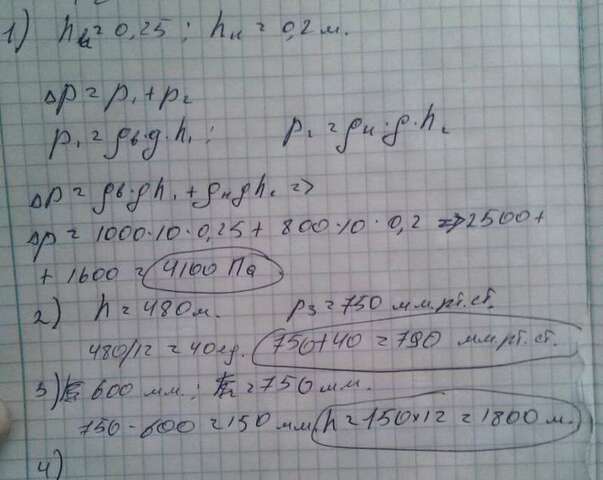 1) hв = 0,25 ; hк = 0,2 м.
Δp = p₁ + p₂
p₁ = ρв·g·h₁ ; p₂ = ρк·g·h₂
Δp = ρв·gh₁ + ρкgh₂ =>
Δp = 1000·10·0,25 + 800·10·0,2 => 2500 +
+ 1600 = 4100 Па
2) h = 480 м. p₃ = 750 мм.рт.ст.
480/12 = 40 ед. 750 + 40 = 790 мм рт. ст.
3) 600 мм. ; = 750 мм.
750 - 600 = 150 мм h = 150 × 12 = 1800 м.
4)